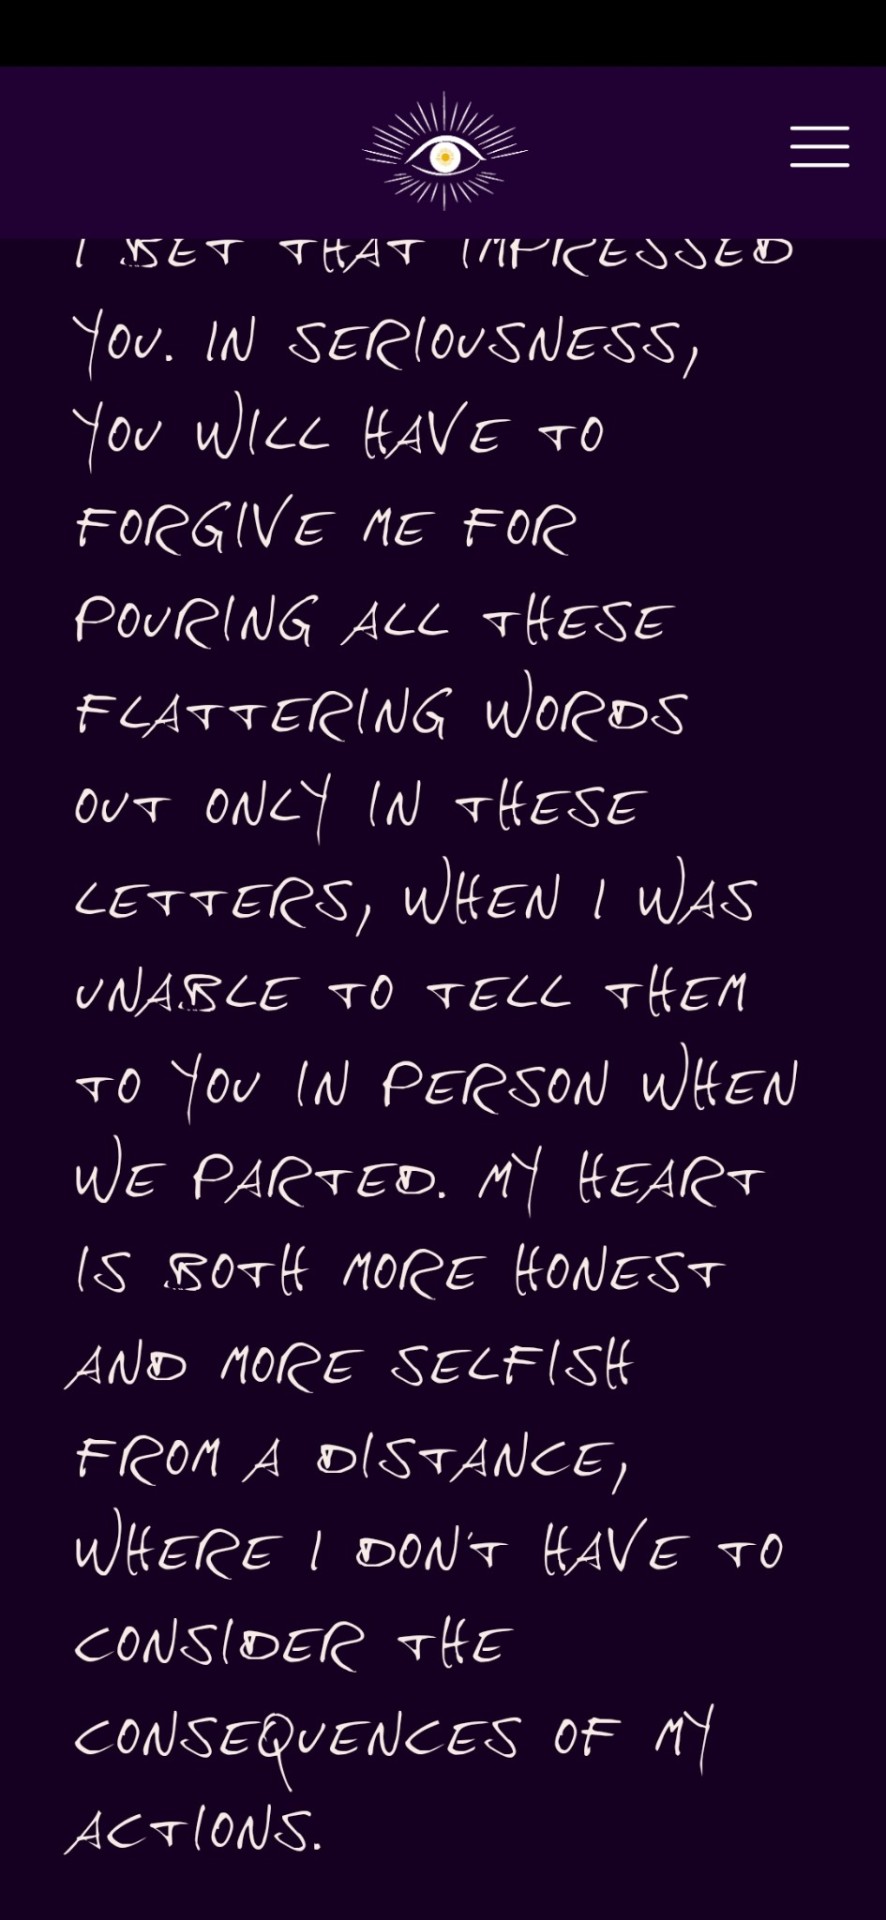 I BET THAT IMPRESSED
YOU. IN SERIOUSNESS,
YOU WILL HAVE TO
FORGIVE ME FOR
POURING ALL THESE
FLATTERING WORDS
OUT ONLY IN THESE
LETTERS, WHEN I WAS
UNABLE TO TELL THEM
TO YOU IN PERSON WHEN
WE PARTED. MY HEART
IS BOTH MORE HONEST
AND MORE SELFISH
FROM A DISTANCE,
WHERE I DON'T HAVE TO
CONSIDER THE
CONSEQUENCES OF MY
ACTIONS.